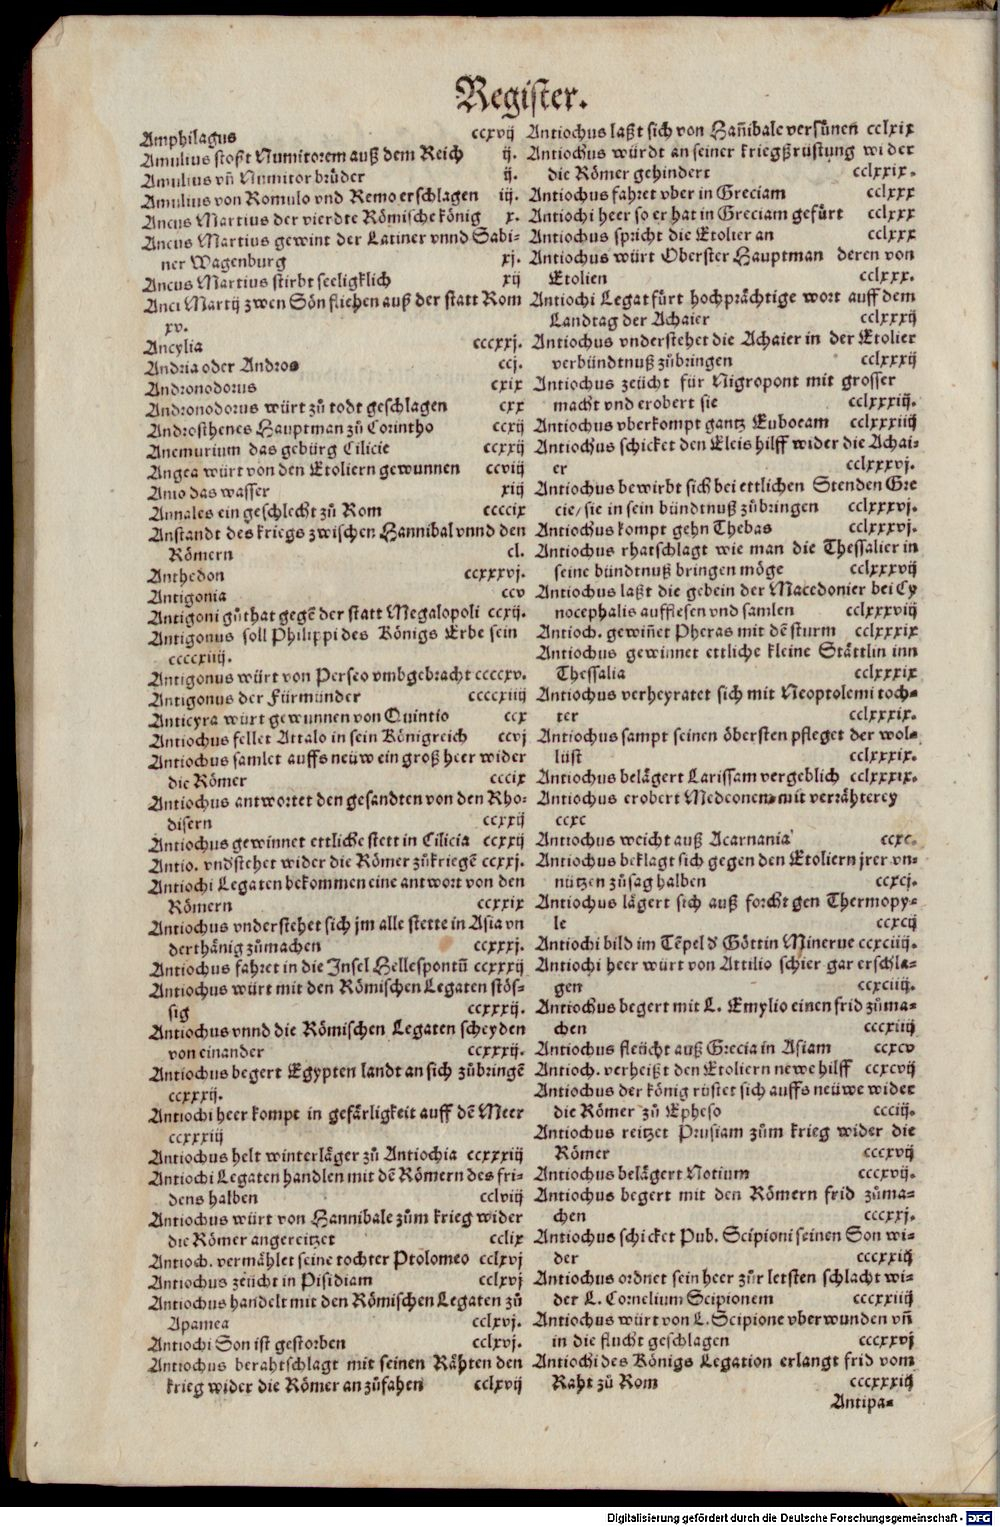 Register.
Amphilagus ccxvij
Amulius stoßt Numitorem auß dem Reich ij.
Amulius vñ Numitor brůder ij.
Amulius von Romulo vnd Remo erschlagen iij.
Ancus Martius der vierdte Römische könig x.
Ancus Martius gewint der Latiner vnnd Sabi-
ner Wagenburg xj.
Ancus Martius stirbt seeligklich xij
Anci Martij zwen Sön fliehen auß der statt Rom
xv.
Ancylia cccxxj.
Andria oder Andros ccj.
Andronodorus cxix
Andronodorus würt zů todt geschlagen cxx
Androsthenes Hauptman zů Corintho ccxij
Anemurium das gebürg Cilicie ccxxij
Angea würt von den Etoliern gewunnen ccviij
Anio das wasser xij
Annales ein geschlecht zů Rom ccccix
Anstandt des kriegs zwischen Hannibal vnnd den
Römern cl.
Anthedon ccxxxvj.
Antigonia ccv
Antigoni gůthat gegẽ der statt Megalopoli ccxij.
Antigonus soll Philippi des Königs Erbe sein
ccccxiij.
Antigonus würt von Perseo vmbgebracht ccccxv.
Antigonus der Fürmünder ccccxiij
Anticyra würt gewunnen von Quintio ccx
Antiochus fellet Attalo in sein Königreich ccvj
Antiochus samlet auffs neüw ein groß heer wider
die Römer cccix
Antiochus antwortet den gesandten von den Rho-
disern ccxxij
Antiochus gewinnet ettliche stett in Cilicia ccxxij
Antio. vnd'stehet wider die Römer zůkriegẽ ccxxj.
Antiochi Legaten bekommen eine antwort von den
Römern ccxxix
Antiochus vnderstehet sich jm alle stette in Asia vn
derthänig zůmachen ccxxxj.
Antiochus fahret in die Insel Hellespontũ ccxxxij
Antiochus würt mit den Römischen Legaten stös-
sig ccxxxij.
Antiochus vnnd die Römischen Legaten scheyden
von einander ccxxxij.
Antiochus begert Egypten landt an sich zůbringẽ
ccxxxij.
Antiochi heer kompt in gefärligkeit auff dẽ Meer
ccxxxiij
Antiochus helt winterläger zů Antiochia ccxxxiij
Antiochi Legaten handlen mit dẽ Römern des fri-
dens halben cclviij
Antiochus würt von Hannibale zům krieg wider
die Römer angereitzet cclix
Antioch. vermählet seine tochter Ptolomeo cclxvj
Antiochus zeücht in Pisidiam cclxvj
Antiochus handelt mit den Römischen Legaten zů
Apamea cclxvj.
Antiochi Son ist gestorben cclxvj.
Antiochus berahtschlagt mit seinen Rähten den
krieg wider die Römer anzůfahen cclxvij
Antiochus laßt sich von Hañibale versůnen cclxix
Antiochus würdt an seiner kriegßrüstung wider
die Römer gehindert cclxxix.
Antiochus fahret vber in Greciam cclxxx
Antiochi heer so er hat in Greciam gefürt cclxxx
Antiochus spricht die Etolier an cclxxx
Antiochus würt Oberster Hauptman deren von
Etolien cclxxx.
Antiochi Legat fürt hochprächtige wort auff dem
Landtag der Achaier cclxxxij
Antiochus vnderstehet die Achaier in der Etolier
verbündtnuß zůbringen cclxxxij
Antiochus zeücht für Nigropont mit grosser
macht vnd erobert sie cclxxxiij.
Antiochus vberkompt gantz Euboeam cclxxxiiij
Antiochus schicket den Eleis hilff wider die Achai-
er cclxxxvj.
Antiochus bewirbt sich bei ettlichen Stenden Gre
cie/ sie in sein bündtnuß zůbringen cclxxxvj.
Antiochus kompt gehn Thebas cclxxxvj.
Antiochus rhatschlagt wie man die Thessalier in
seine bündtnuß bringen möge cclxxxvij
Antiochus laßt die gebein der Macedonier bei Cy
nocephalis aufflesen vnd samlen cclxxxviij
Antioch. gewiñet Pheras mit dẽ sturm cclxxxix
Antiochus gewinnet ettliche kleine Stättlin inn
Thessalia cclxxxix
Antiochus verheyratet sich mit Neoptolemi toch-
ter cclxxxix.
Antiochus sampt seinen öbersten pfleget der wol-
lüst cclxxxix.
Antiochus belägert Larissam vergeblich cclxxxix.
Antiochus erobert Medeonem mit verrähterey
ccxc
Antiochus weicht auß Acarnania ccxc.
Antiochus beklagt sich gegen den Etoliern jrer vn-
nützen zůsag halben ccxcj.
Antiochus lägert sich auß forcht gen Thermopy-
le ccxcij
Antiochi bild im Tẽpel d' Göttin Minerue ccxciij.
Antiochi heer würt von Attilio schier gar erschla-
gen ccxciij.
Antiochus begert mit L. Emylio einen frid zůma-
chen cccxiij
Antiochus fleücht auß Grecia in Asiam ccxcv
Antioch. verheißt den Etoliern newe hilff ccxcvij
Antiochus der könig rüstet sich auffs neüwe wider
die Römer zů Epheso ccciij.
Antiochus reitzet Prusiam zům krieg wider die
Römer cccxvij
Antiochus belägert Notium cccxvij.
Antiochus begert mit den Römern frid zůma-
chen cccxxj.
Antiochus schicket Pub. Scipioni seinen Son wi-
der cccxxiij
Antiochus ordnet sein heer zůr letsten schlacht wi-
der L. Cornelium Scipionem cccxxiiij
Antiochus würt von L. Scipione vberwunden vñ
in die flucht geschlagen cccxxvj
Antiochi des Königs Legation erlangt frid vom
Raht zů Rom cccxxxiij
Antipa-
Digitalisierung gefördert durch die Deutsche Forschungsgemeinschaft - DFG